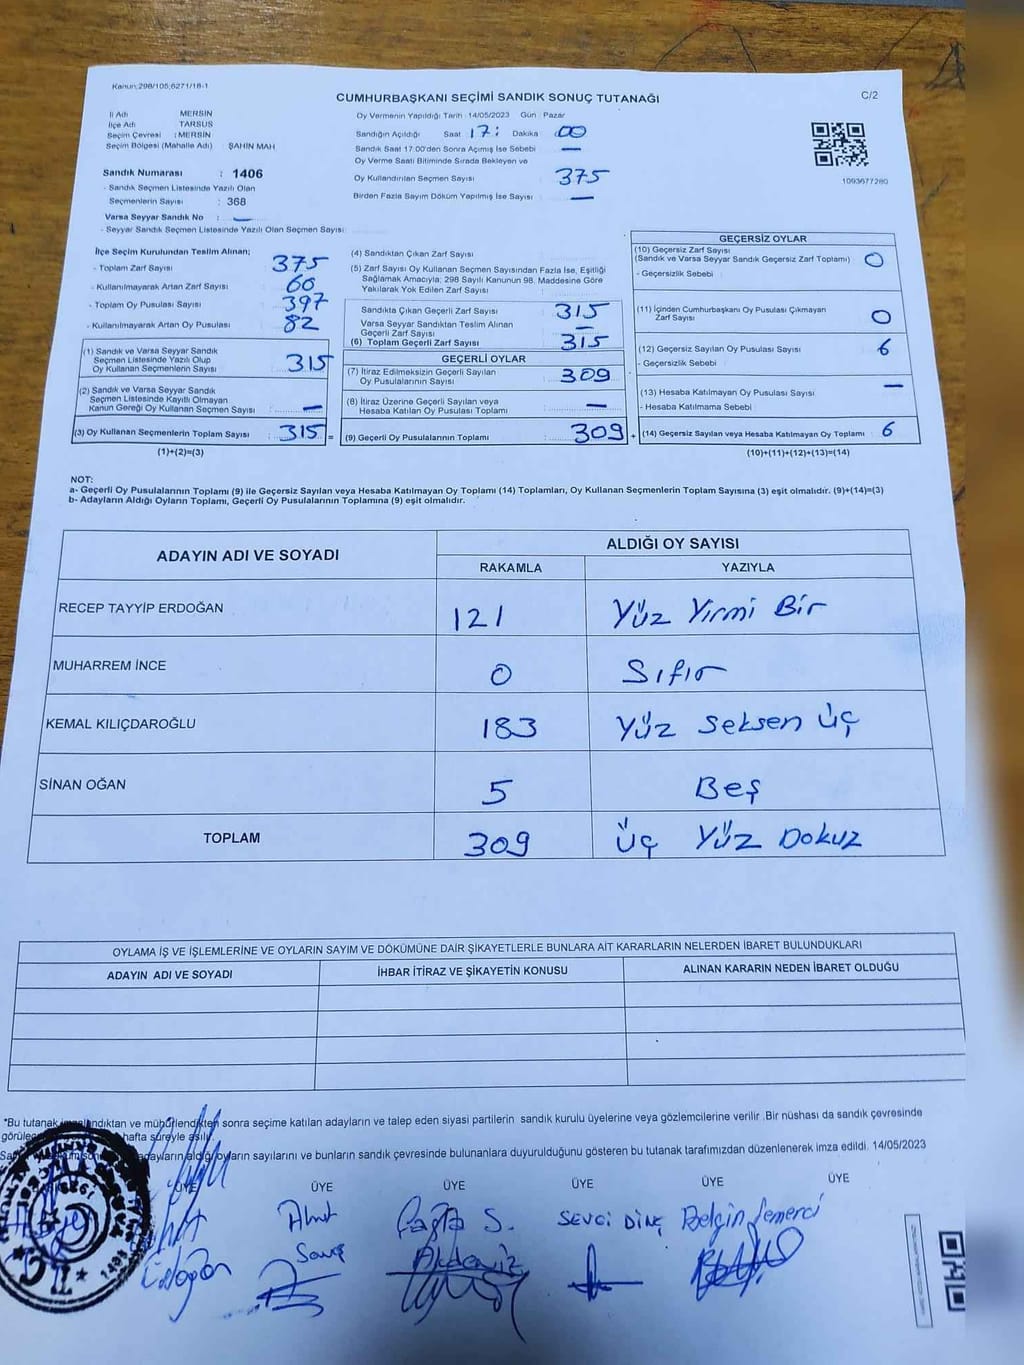 Kanun:298/105;6271/18-1
CUMHURBAŞKANI SEÇİMİ SANDIK SONUÇ TUTANAĞI
C/2
İl Adı MERSİN
İlçe Adı TARSUS
Seçim Çevresi : MERSİN
Seçim Bölgesi (Mahalle Adı) ŞAHİN MAH
Sandık Numarası : 1406
- Sandık Seçmen Listesinde Yazılı Olan
Seçmenlerin Sayısı : 368
Varsa Seyyar Sandık No : —
- Seyyar Sandık Seçmen Listesinde Yazılı Olan Seçmen Sayısı:
Oy Vermenin Yapıldığı Tarih : 14/05/2023 Gün : Pazar
Sandığın Açıldığı Saat 17: Dakika :00
Sandık Saat 17:00'den Sonra Açımış İse Sebebi —
Oy Verme Saati Bitiminde Sırada Bekleyen ve
Oy Kullandırılan Seçmen Sayısı 375
Birden Fazla Sayım Döküm Yapılmış İse Sayısı —
1093677280
İlçe Seçim Kurulundan Teslim Alınan;
- Toplam Zarf Sayısı 375
- Kullanılmayarak Artan Zarf Sayısı 60
- Toplam Oy Pusulası Sayısı 397
- Kullanılmayarak Artan Oy Pusulası 82
(1) Sandık ve Varsa Seyyar Sandık
Seçmen Listesinde Yazılı Olup
Oy Kullanan Seçmenlerin Sayısı 315
(2) Sandık ve Varsa Seyyar Sandık
Seçmen Listesinde Kayıtlı Olmayan
Kanun Gereği Oy Kullanan Seçmen Sayısı —
(3) Oy Kullanan Seçmenlerin Toplam Sayısı 315 =
(1)+(2)=(3)
(4) Sandıktan Çıkan Zarf Sayısı
(5) Zarf Sayısı Oy Kullanan Seçmen Sayısından Fazla İse, Eşitliği
Sağlamak Amacıyla; 298 Sayılı Kanunun 98. Maddesine Göre
Yakılarak Yok Edilen Zarf Sayısı
Sandıkta Çıkan Geçerli Zarf Sayısı 315
Varsa Seyyar Sandıktan Teslim Alınan
Geçerli Zarf Sayısı —
(6) Toplam Geçerli Zarf Sayısı 315
GEÇERLİ OYLAR
(7) İtiraz Edilmeksizin Geçerli Sayılan
Oy Pusulalarının Sayısı 309
(8) İtiraz Üzerine Geçerli Sayılan veya
Hesaba Katılan Oy Pusulası Toplamı —
(9) Geçerli Oy Pusulalarının Toplamı 309 +
GEÇERSİZ OYLAR
(10) Geçersiz Zarf Sayısı
(Sandık ve Varsa Seyyar Sandık Geçersiz Zarf Toplamı) 0
- Geçersizlik Sebebi :
(11) İçinden Cumhurbaşkanı Oy Pusulası Çıkmayan
Zarf Sayısı 0
(12) Geçersiz Sayılan Oy Pusulası Sayısı 6
- Geçersizlik Sebebi :
(13) Hesaba Katılmayan Oy Pusulası Sayısı —
- Hesaba Katılmama Sebebi
(14) Geçersiz Sayılan veya Hesaba Katılmayan Oy Toplamı 6
(10)+(11)+(12)+(13)=(14)
NOT:
a- Geçerli Oy Pusulalarının Toplamı (9) ile Geçersiz Sayılan veya Hesaba Katılmayan Oy Toplamı (14) Toplamları, Oy Kullanan Seçmenlerin Toplam Sayısına (3) eşit olmalıdır. (9)+(14)=(3)
b- Adayların Aldığı Oyların Toplamı, Geçerli Oy Pusulalarının Toplamına (9) eşit olmalıdır.
ADAYIN ADI VE SOYADI
ALDIĞI OY SAYISI
RAKAMLA YAZIYLA
RECEP TAYYİP ERDOĞAN 121 Yüz Yirmi Bir
MUHARREM İNCE 0 Sıfır
KEMAL KILIÇDAROĞLU 183 Yüz Seksen Üç
SİNAN OĞAN 5 Beş
TOPLAM 309 Üç Yüz Dokuz
OYLAMA İŞ VE İŞLEMLERİNE VE OYLARIN SAYIM VE DÖKÜMÜNE DAİR ŞİKAYETLERLE BUNLARA AİT KARARLARIN NELERDEN İBARET BULUNDUKLARI
ADAYIN ADI VE SOYADI İHBAR İTİRAZ VE ŞİKAYETİN KONUSU ALINAN KARARIN NEDEN İBARET OLDUĞU
*Bu tutanak imzalandıktan ve mühürlendikten sonra seçime katılan adayların ve talep eden siyasi partilerin sandık kurulu üyelerine veya gözlemcilerine verilir .Bir nüshası da sandık çevresinde
hafta süreyle asılır.
adayların aldığı oyların sayılarını ve bunların sandık çevresinde bulunanlara duyurulduğunu gösteren bu tutanak tarafımızdan düzenlenerek imza edildi. 14/05/2023
ÜYE ÜYE ÜYE ÜYE ÜYE ÜYE
Ahmet Çağla S. SEVGİ DİNÇ Belgin Demerci
Savaş Akdeniz
T.C.